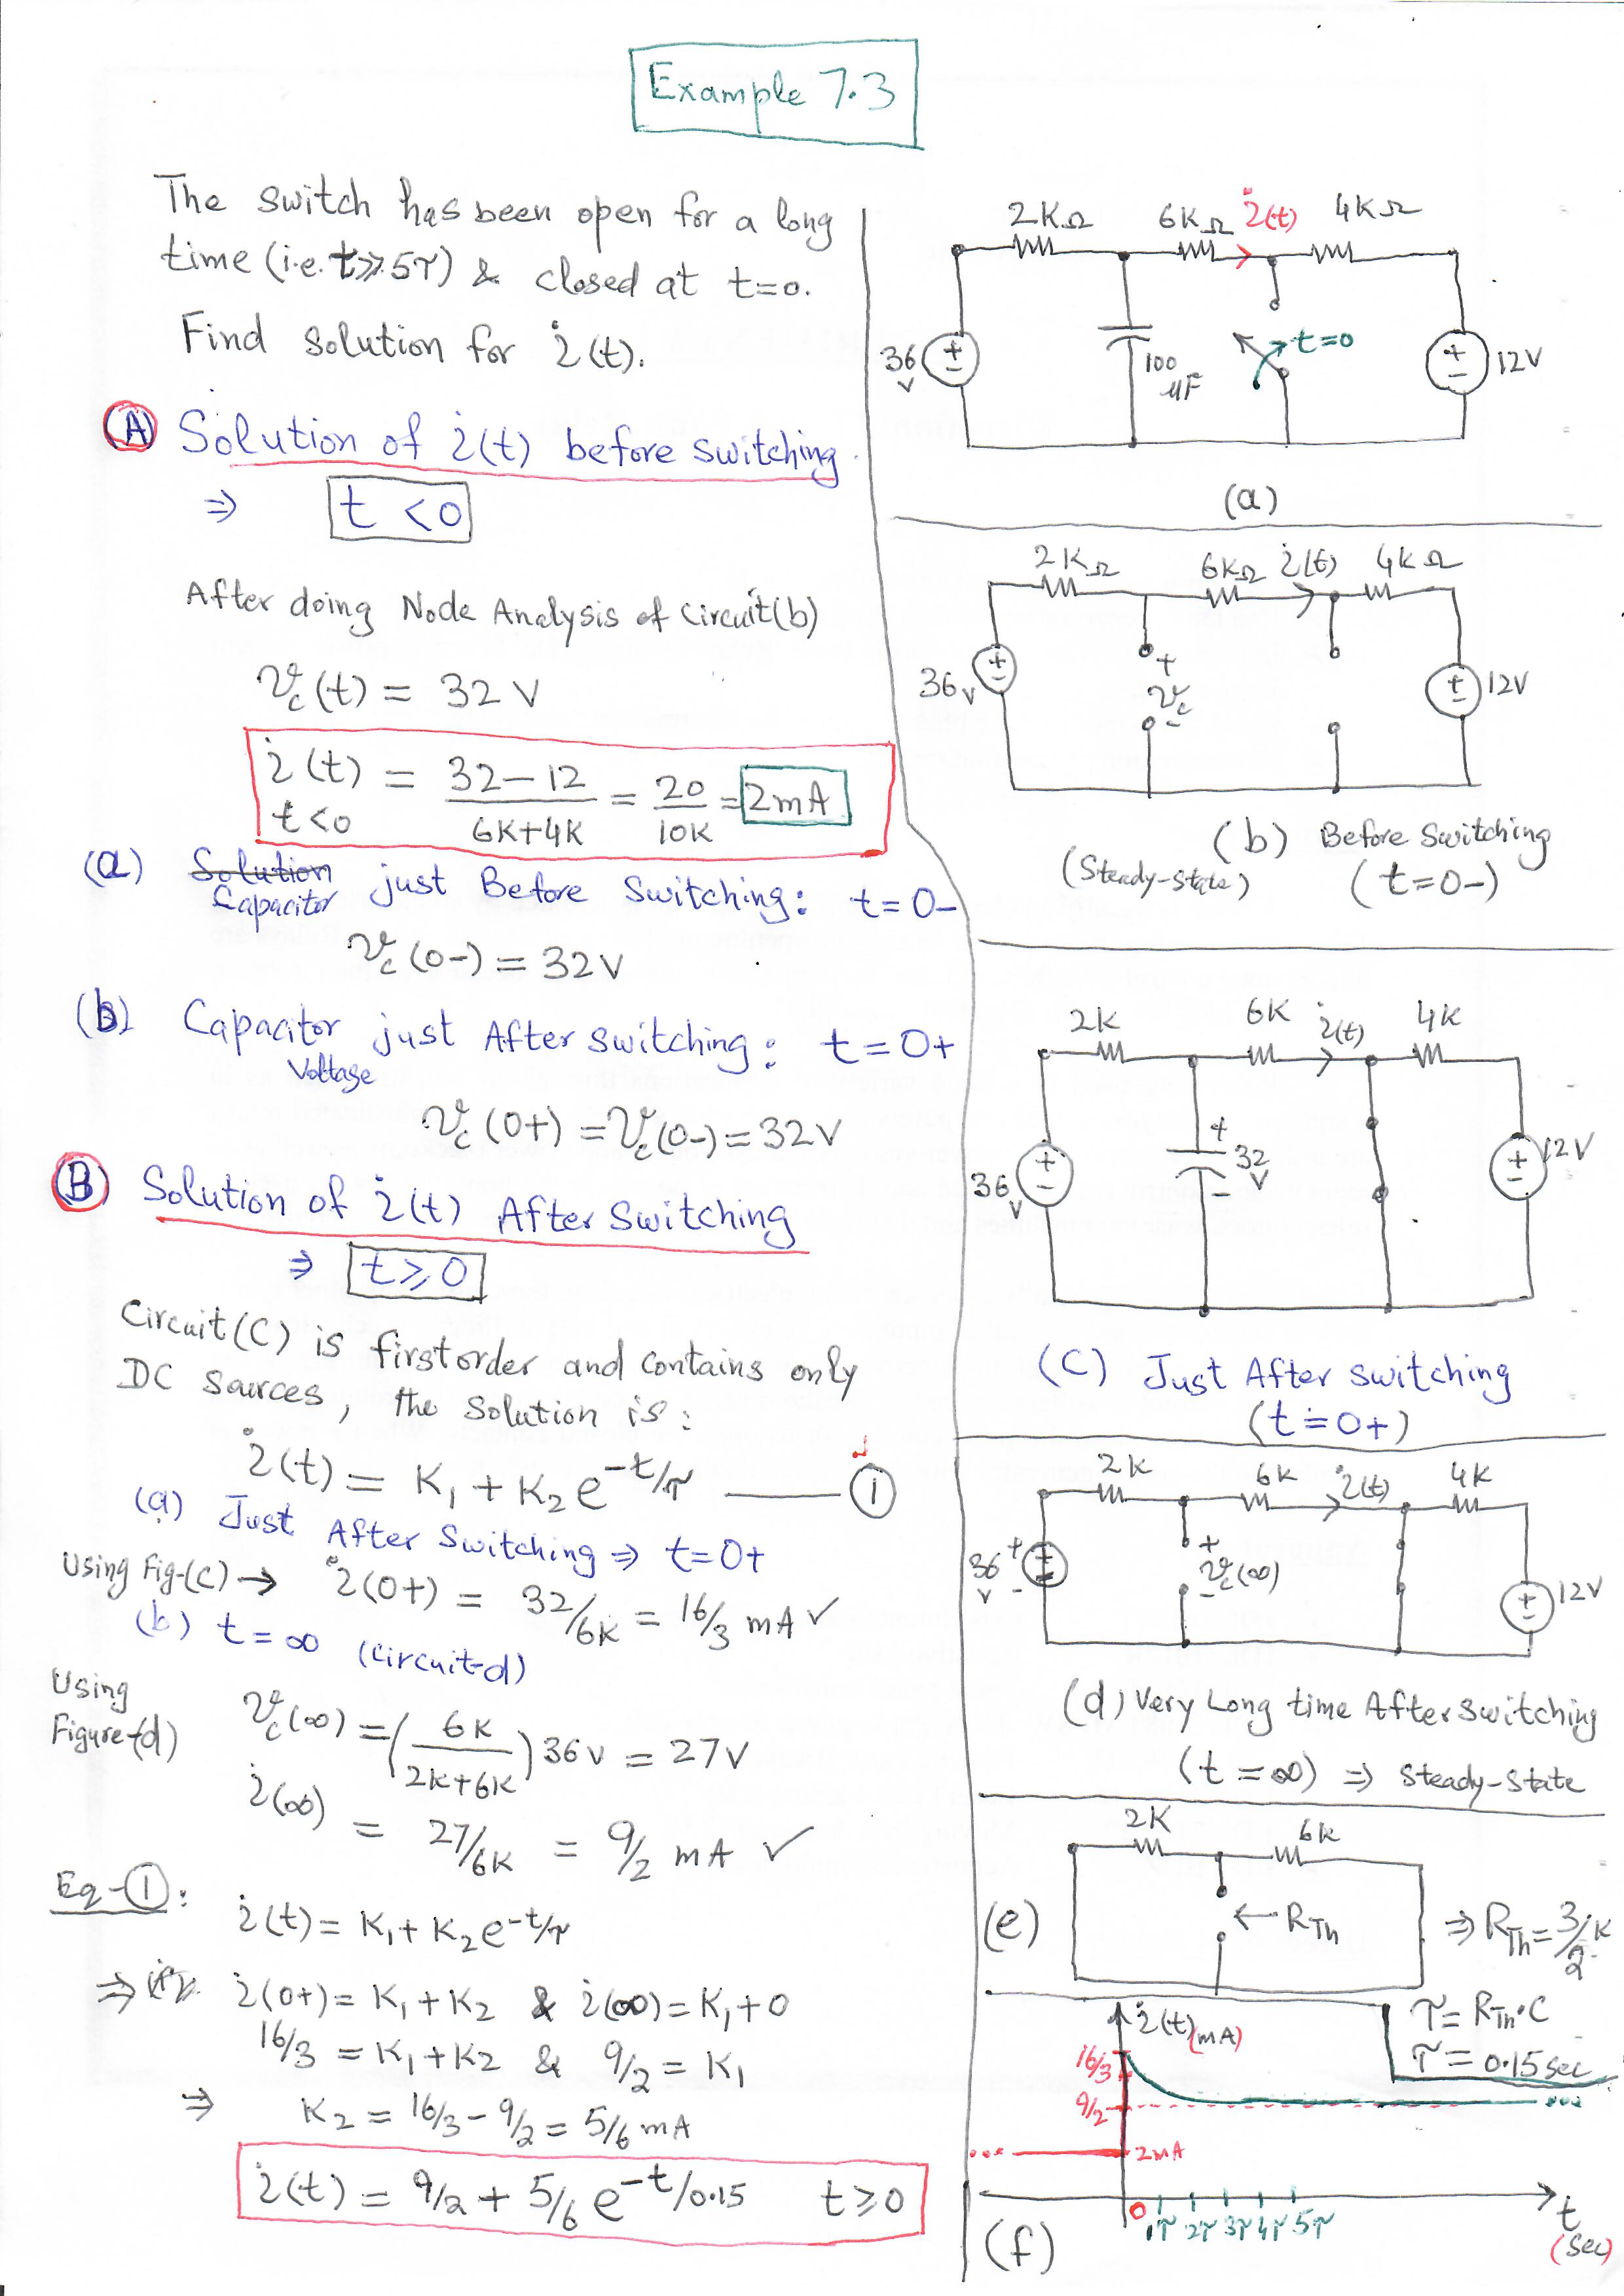 Example 7.3
The switch has been open for a long
time (i.e. t≫5τ) & closed at t=0.
Find solution for i(t).
(A) Solution of i(t) before switching
⇒ t <0
After doing Node Analysis of Circuit(b)
Vc(t) = 32 V
i(t) = 32-12 / 6K+4K = 20 / 10K = 2mA
t<0
(a) Solution just Before Switching: t=0-
Capacitor
Vc(0-) = 32V
(b) Capacitor just After switching: t=0+
Voltage
Vc(0+) = Vc(0-) = 32V
(B) Solution of i(t) After Switching
⇒ t≥0
Circuit(C) is first order and contains only
DC sources, the solution is:
i(t) = K1 + K2 e^-t/τ ——— (1)
(a) Just After Switching ⇒ t=0+
Using Fig-(c) → i(0+) = 32/6K = 16/3 mA ✓
(b) t=∞ (Circuit-d)
Using
Figure-(d)
Vc(∞) = (6K / 2K+6K) 36V = 27V
i(∞) = 27/6K = 9/2 mA ✓
Eq-(1):
i(t) = K1 + K2 e^-t/τ
⇒ i(0+) = K1 + K2 & i(∞) = K1 + 0
16/3 = K1 + K2 & 9/2 = K1
⇒ K2 = 16/3 - 9/2 = 5/6 mA
i(t) = 9/2 + 5/6 e^-t/0.15 t≥0
2KΩ 6KΩ i(t) 4KΩ
36 V
100 μF
t=0
12V
(a)
2KΩ 6KΩ i(t) 4KΩ
36V
+ Vc -
12V
(b) Before Switching
(Steady-State) (t=0-)
2K 6K i(t) 4K
36 V
+ 32 V -
12V
(C) Just After switching
(t=0+)
2K 6K i(t) 4K
36 V
+ Vc(∞) -
12V
(d) Very Long time After switching
(t=∞) ⇒ Steady-State
2K 6K
(e) ← RTh ⇒ RTh = 3/2 K
τ = RTh·C
τ = 0.15 sec
i(t) (mA)
16/3
9/2
2mA
0 1τ 2τ 3τ 4τ 5τ
t (sec)
(f)